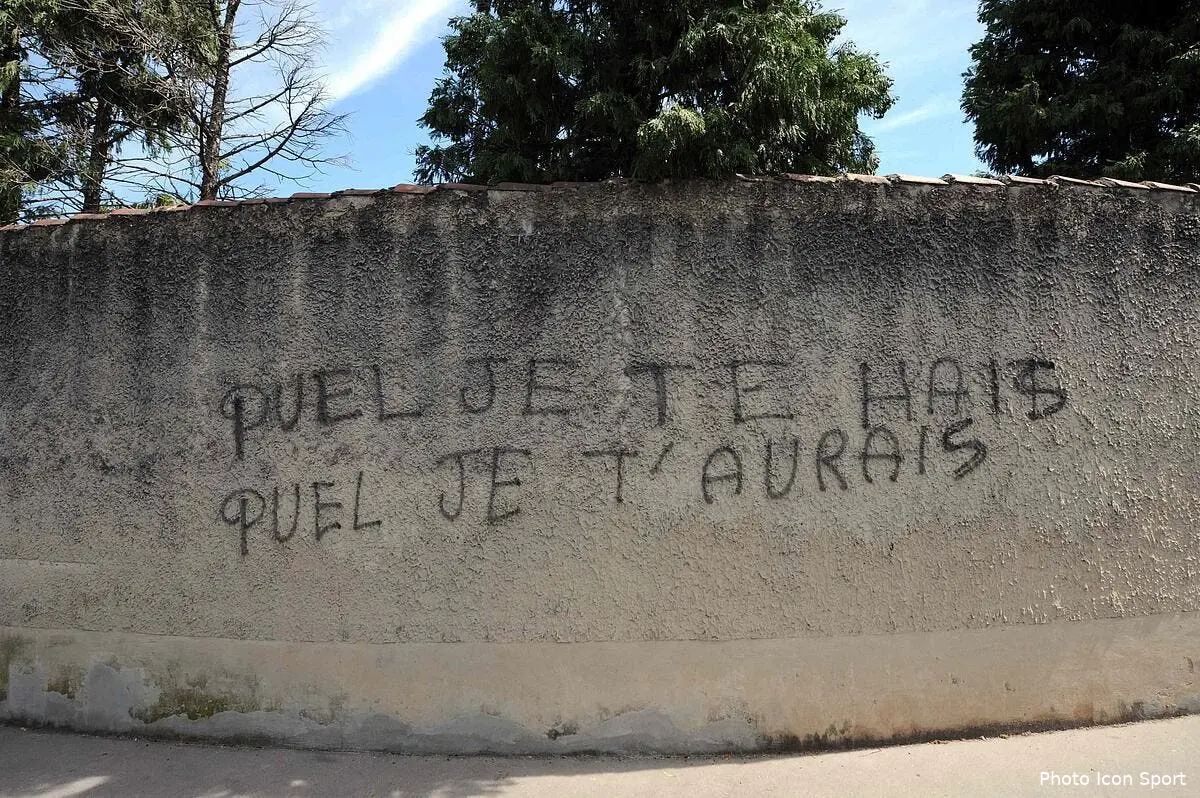 PUEL JE TE HAIS
PUEL JE T'AURAIS
Photo Icon Sport